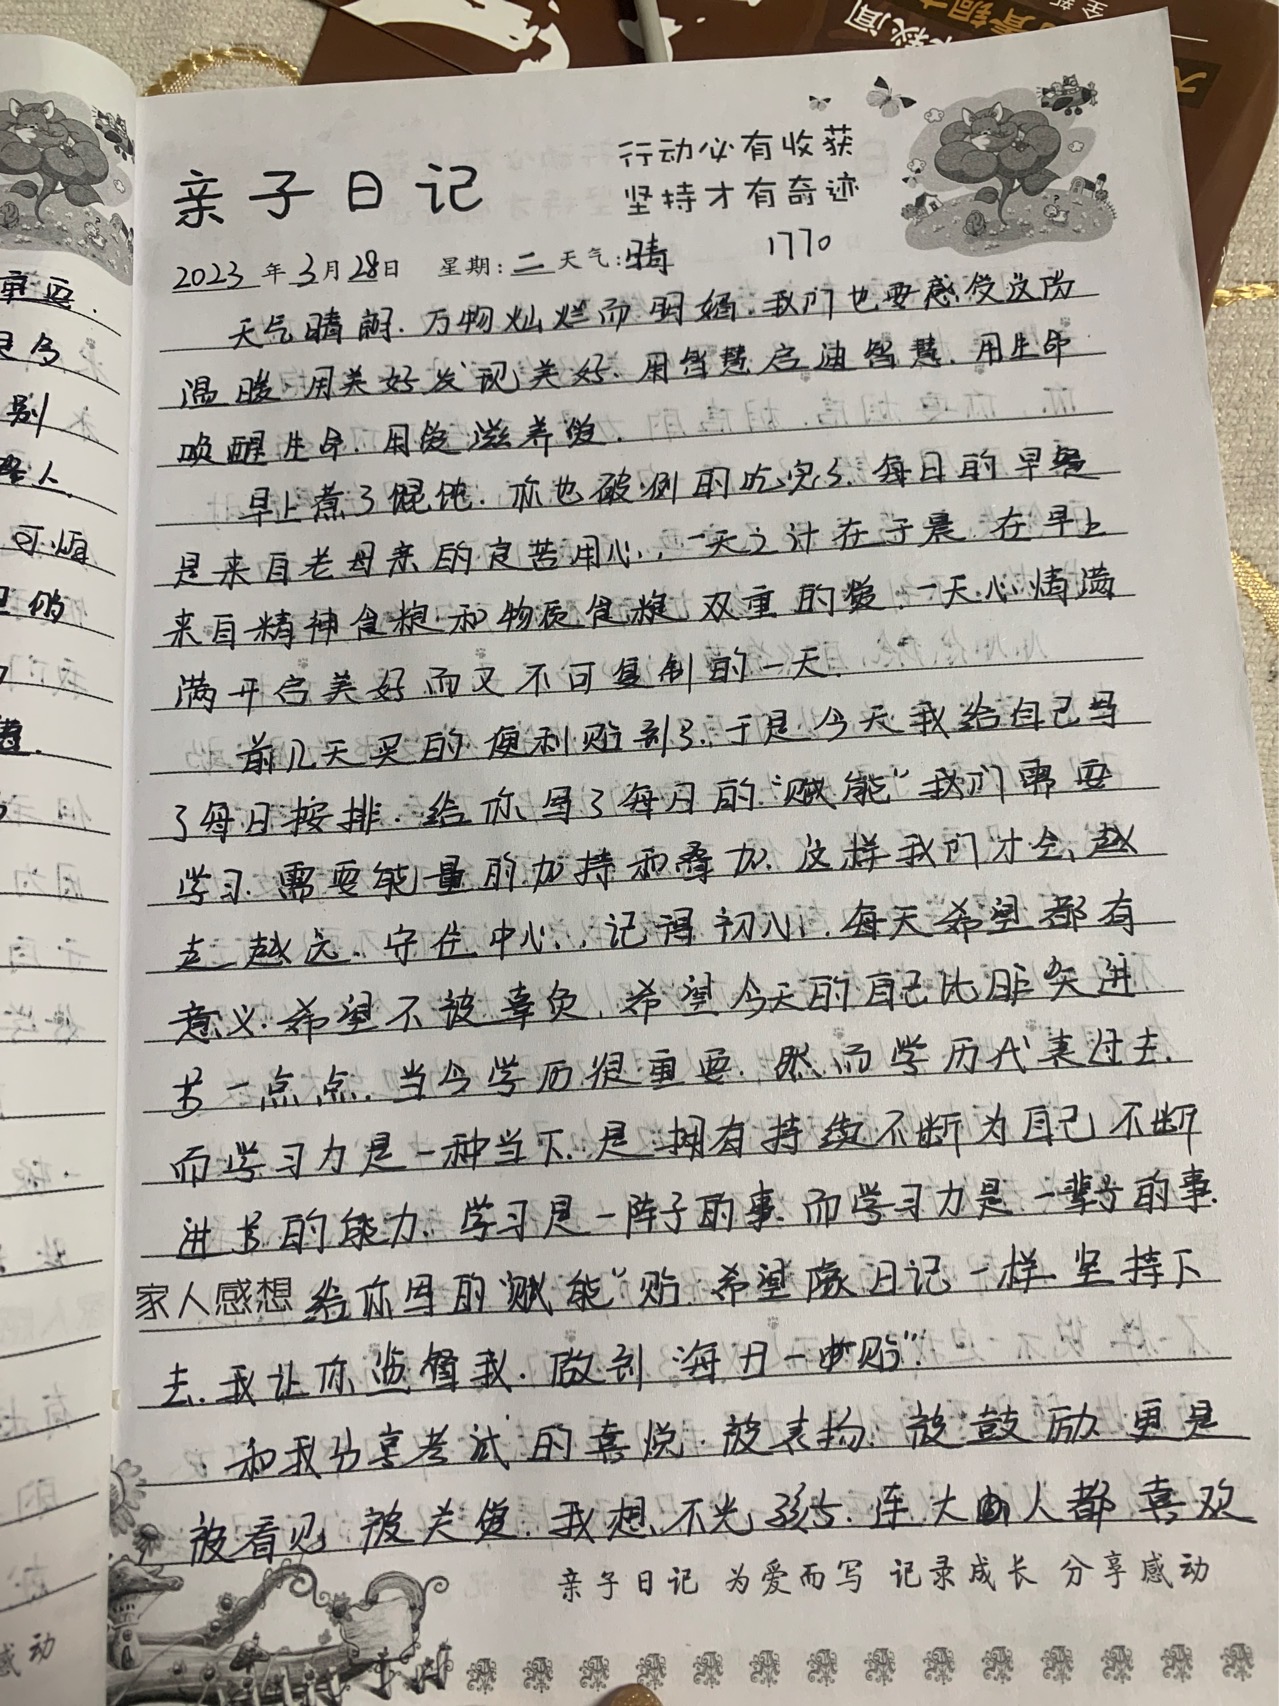 亲子日记
行动必有收获
坚持才有奇迹
2023年3月28日 星期:二 天气:晴 1770
天气晴朗.万物灿烂而明媚.我们也要感受这份
温暖.用美好发现美好.用智慧启迪智慧.用生命
唤醒生命.用爱滋养爱.
早上煮了馄饨.你也破例的吃完了.每日的早餐
是来自老母亲的良苦用心,一天之计在于晨.在早上
来自精神食粮和物质食粮双重的爱.一天心情满
满开启美好而又不可复制的一天.
前几天买的便利贴到了.于是今天我给自己写
了每日按排.给你写了每日的“赋能”我们需要
学习.需要能量的加持和叠加.这样我们才会越
走越远.守住中心,记得初心.每天希望都有
意义.希望不被辜负.希望今天的自己比昨天进
步一点点.当今学历很重要.然而学历代表过去.
而学习力是一种当下.是拥有持续不断为自己不断
进步的能力.学习是一阵子的事.而学习力是一辈子的事.
家人感想 给你写的“赋能”贴.希望像日记一样坚持下
去.我让你监督我.做到“每日一贴”.
和我分享考试的喜悦.被表扬.被鼓励.更是
被看见.被关爱.我想不光孩子.连大人都喜欢
亲子日记 为爱而写 记录成长 分享感动
重要.
是多
别
人.
可
感动